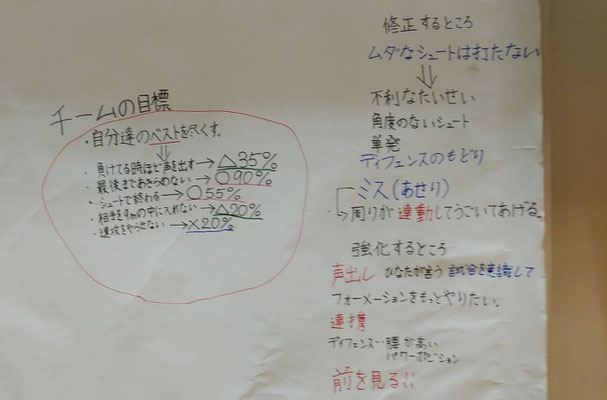 チームの目標
・自分達のベストを尽くす。
・負けてる時ほど声を出す→△35%
・最後まであきらめない→○90%
・シュートで終わる→○55%
・相手を9mの中に入れない→△20%
・速攻をやらせない→×20%
修正するところ
ムダなシュートは打たない
不利なたいせい
角度のないシュート
単発
ディフェンスのもどり
ミス(あせり)
・周りが連動してうごいてあげる。
強化するところ
声出し ひなたが言う 試合を意識して
フォーメーションをもっとやりたい。
連携
ディフェンス…腰が高い
パワーポジション
前を見る!!